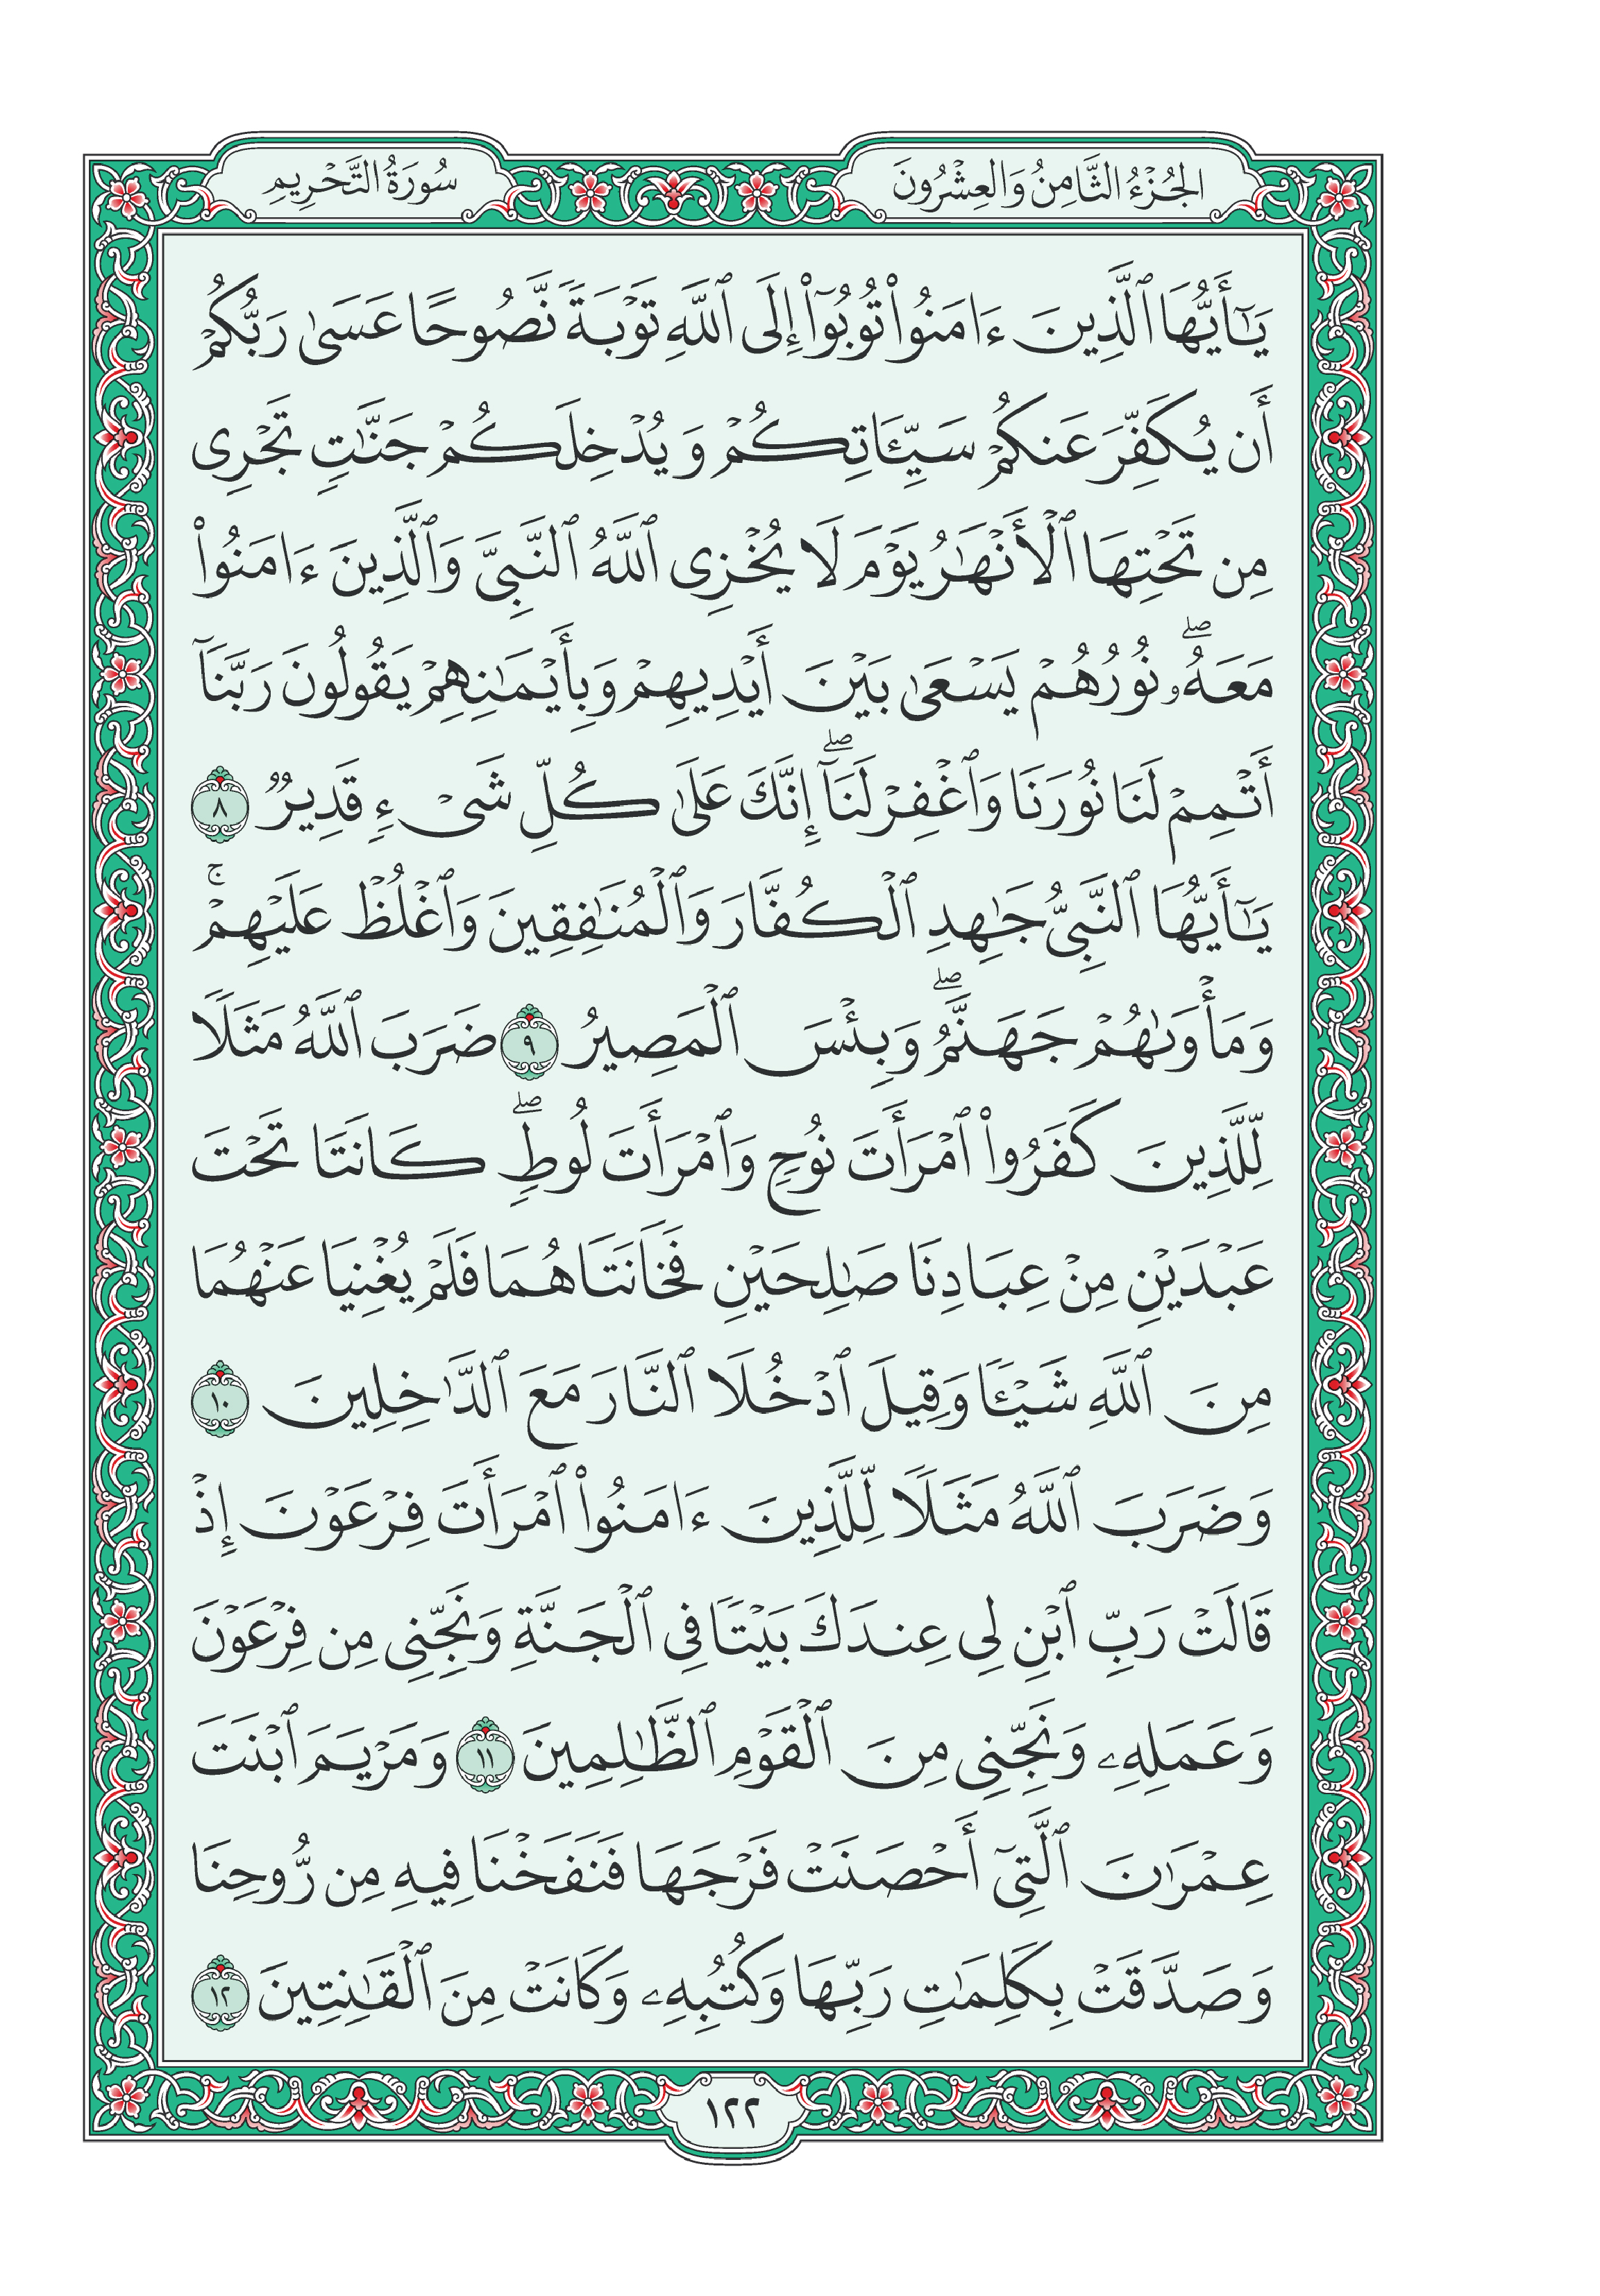 الجُزْءُ الثَّامِنُ وَالعِشْرُونَ
سُورَةُ التَّحْرِيمِ
يَٰٓأَيُّهَا ٱلَّذِينَ ءَامَنُوا۟ تُوبُوٓا۟ إِلَى ٱللَّهِ تَوْبَةً نَّصُوحًا عَسَىٰ رَبُّكُمْ
أَن يُكَفِّرَ عَنكُمْ سَيِّـَٔاتِكُمْ وَيُدْخِلَكُمْ جَنَّٰتٍ تَجْرِى
مِن تَحْتِهَا ٱلْأَنْهَٰرُ يَوْمَ لَا يُخْزِى ٱللَّهُ ٱلنَّبِىَّ وَٱلَّذِينَ ءَامَنُوا۟
مَعَهُۥۖ نُورُهُمْ يَسْعَىٰ بَيْنَ أَيْدِيهِمْ وَبِأَيْمَٰنِهِمْ يَقُولُونَ رَبَّنَآ
أَتْمِمْ لَنَا نُورَنَا وَٱغْفِرْ لَنَآۖ إِنَّكَ عَلَىٰ كُلِّ شَىْءٍ قَدِيرٌ ٨
يَٰٓأَيُّهَا ٱلنَّبِىُّ جَٰهِدِ ٱلْكُفَّارَ وَٱلْمُنَٰفِقِينَ وَٱغْلُظْ عَلَيْهِمْۚ
وَمَأْوَىٰهُمْ جَهَنَّمُۖ وَبِئْسَ ٱلْمَصِيرُ ٩ ضَرَبَ ٱللَّهُ مَثَلًا
لِّلَّذِينَ كَفَرُوا۟ ٱمْرَأَتَ نُوحٍ وَٱمْرَأَتَ لُوطٍۖ كَانَتَا تَحْتَ
عَبْدَيْنِ مِنْ عِبَادِنَا صَٰلِحَيْنِ فَخَانَتَاهُمَا فَلَمْ يُغْنِيَا عَنْهُمَا
مِنَ ٱللَّهِ شَيْـًٔا وَقِيلَ ٱدْخُلَا ٱلنَّارَ مَعَ ٱلدَّٰخِلِينَ ١٠
وَضَرَبَ ٱللَّهُ مَثَلًا لِّلَّذِينَ ءَامَنُوا۟ ٱمْرَأَتَ فِرْعَوْنَ إِذْ
قَالَتْ رَبِّ ٱبْنِ لِى عِندَكَ بَيْتًا فِى ٱلْجَنَّةِ وَنَجِّنِى مِن فِرْعَوْنَ
وَعَمَلِهِۦ وَنَجِّنِى مِنَ ٱلْقَوْمِ ٱلظَّٰلِمِينَ ١١ وَمَرْيَمَ ٱبْنَتَ
عِمْرَٰنَ ٱلَّتِىٓ أَحْصَنَتْ فَرْجَهَا فَنَفَخْنَا فِيهِ مِن رُّوحِنَا
وَصَدَّقَتْ بِكَلِمَٰتِ رَبِّهَا وَكُتُبِهِۦ وَكَانَتْ مِنَ ٱلْقَٰنِتِينَ ١٢
١٢٢